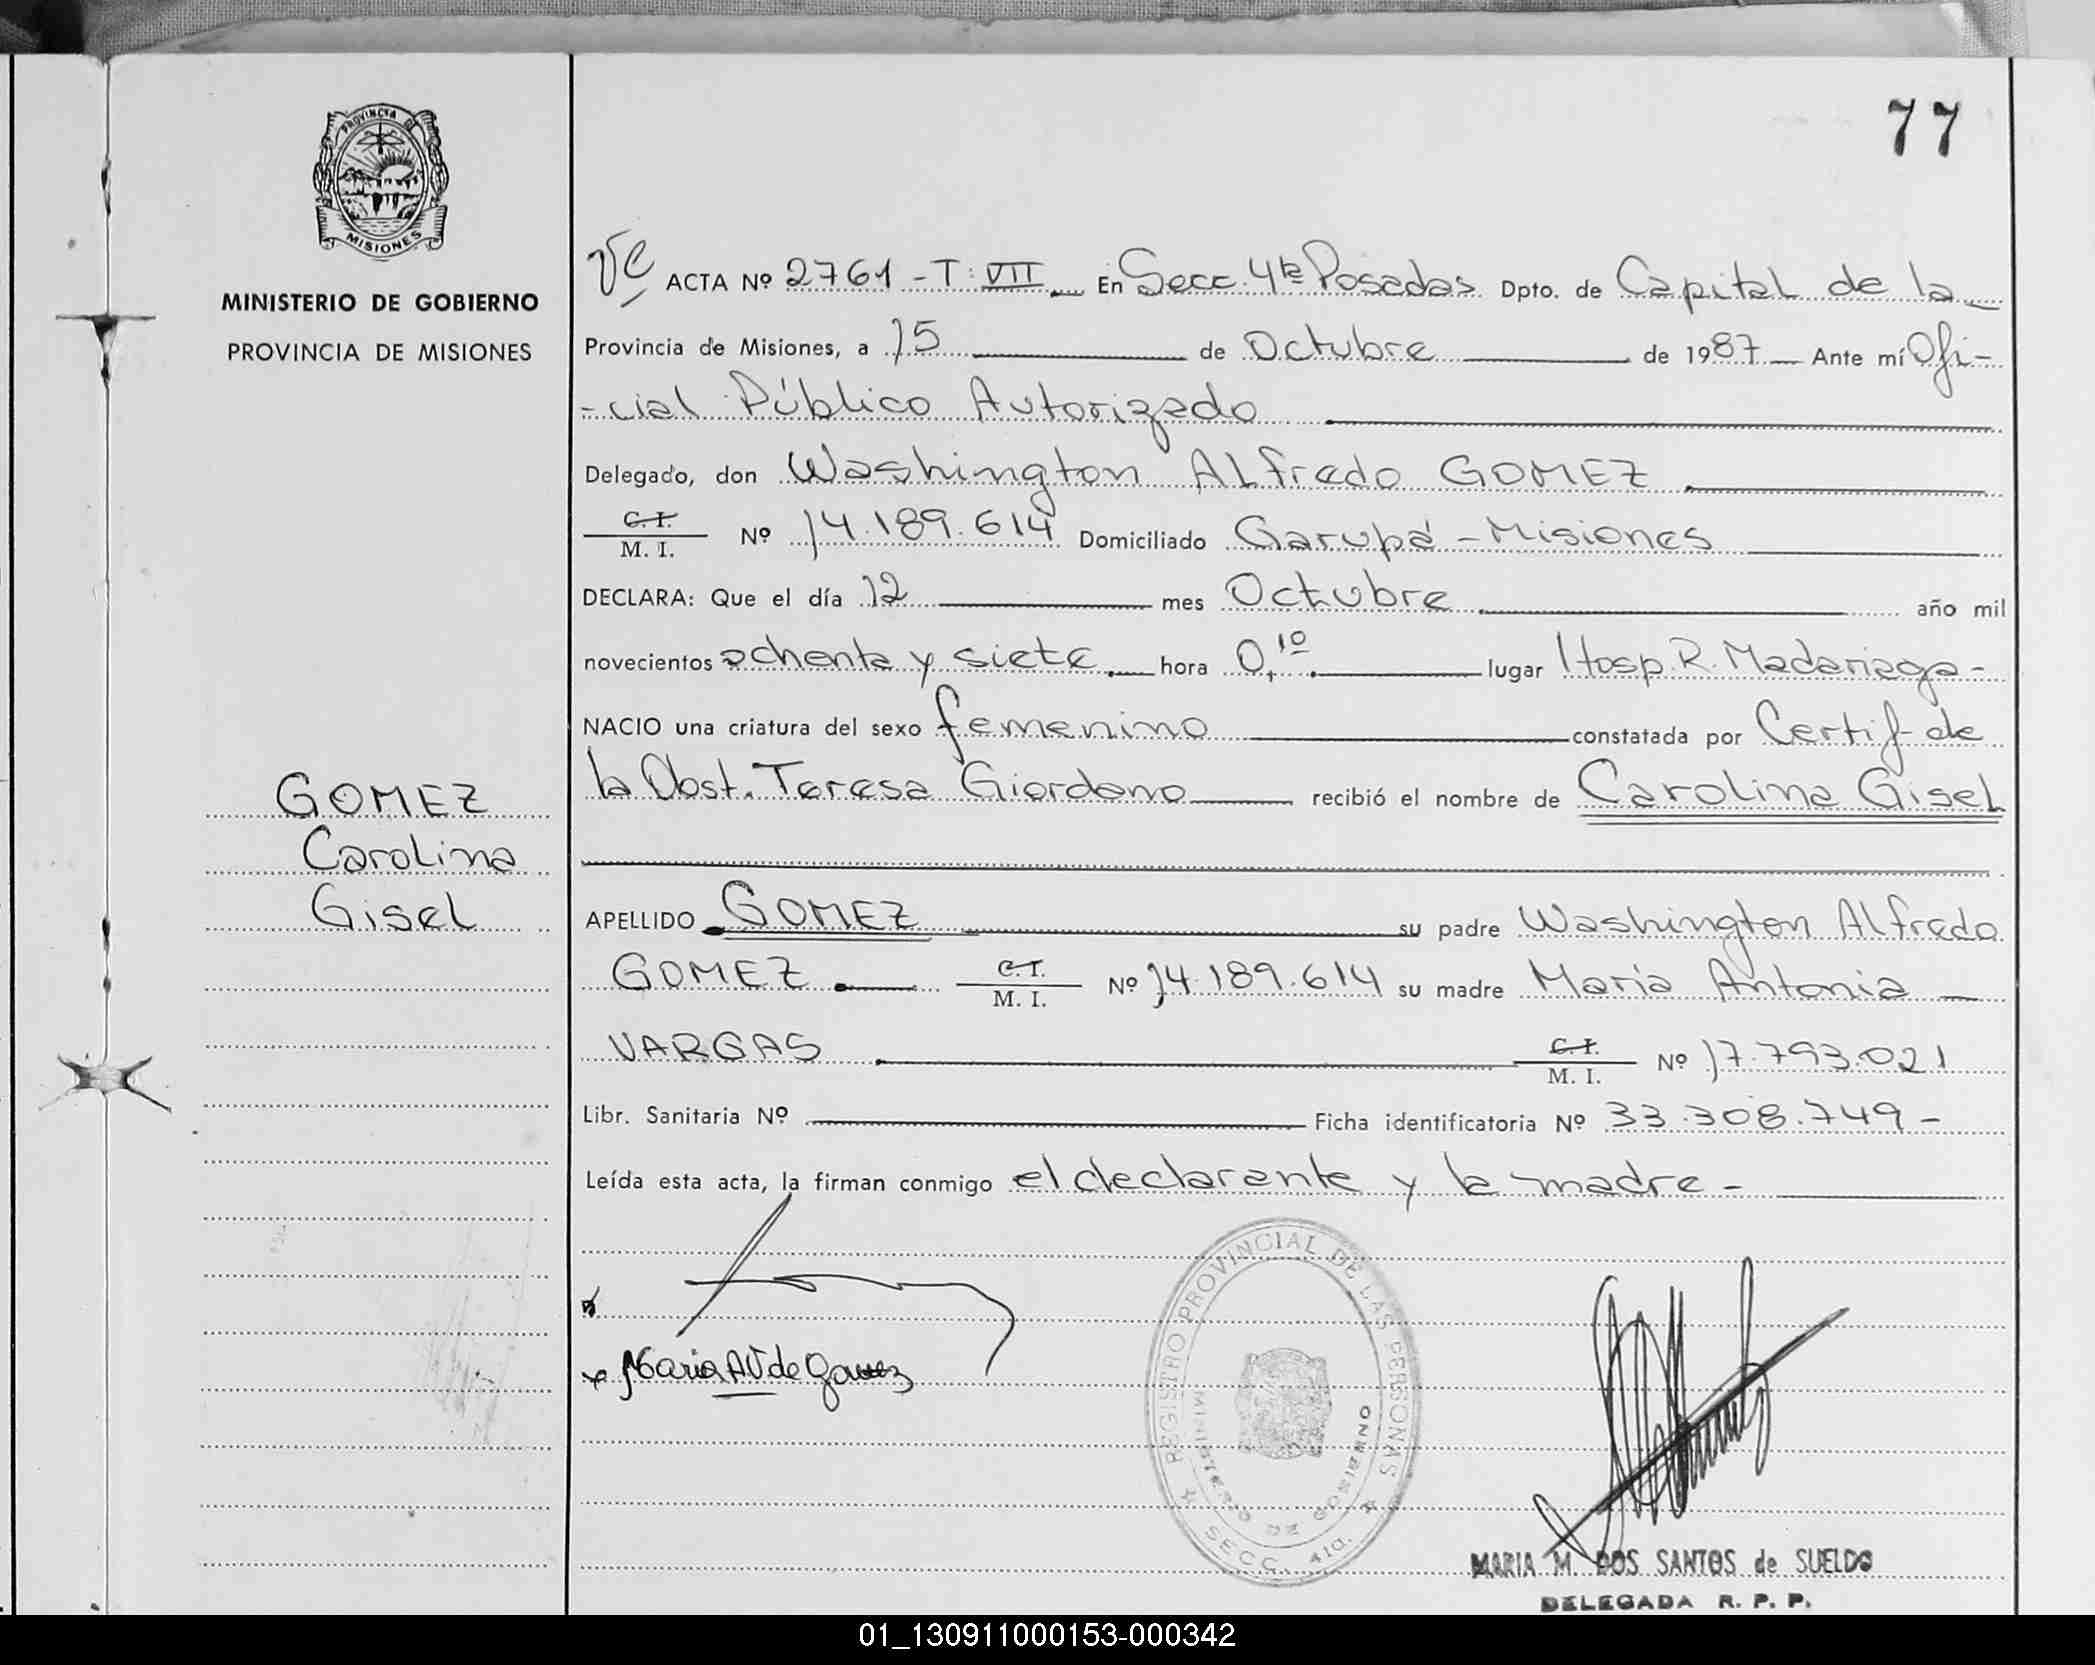 77
PROVINCIA DE
MISIONES
MINISTERIO DE GOBIERNO
PROVINCIA DE MISIONES
GOMEZ
Carolina
Gisel
ACTA Nº 2761 - T: VII En Secc. 4ta Posadas Dpto. de Capital de la
Provincia de Misiones, a 15 de Octubre de 1987 Ante mí Ofi-
-cial Público Autorizado
Delegado, don Washington Alfredo GOMEZ
C. I.
M. I. Nº 14.189.614 Domiciliado Garupá - Misiones
DECLARA: Que el día 12 mes Octubre año mil
novecientos ochenta y siete hora 0,10 lugar Hosp. R. Madariaga -
NACIO una criatura del sexo femenino constatada por Certif. de
la Obst. Teresa Giordano recibió el nombre de Carolina Gisel
APELLIDO GOMEZ su padre Washington Alfredo
GOMEZ C. I. M. I. Nº 14.189.614 su madre María Antonia
VARGAS C. I. M. I. Nº 17.793.021
Libr. Sanitaria Nº Ficha identificatoria Nº 33.308.749 -
Leída esta acta, la firman conmigo el declarante y la madre -
Maria A V de Gomez
REGISTRO PROVINCIAL DE LAS PERSONAS
MINISTERIO DE GOBIERNO
SECC. 4ta.
MARIA M. DOS SANTOS de SUELDO
DELEGADA R. P. P.
01_130911000153-000342